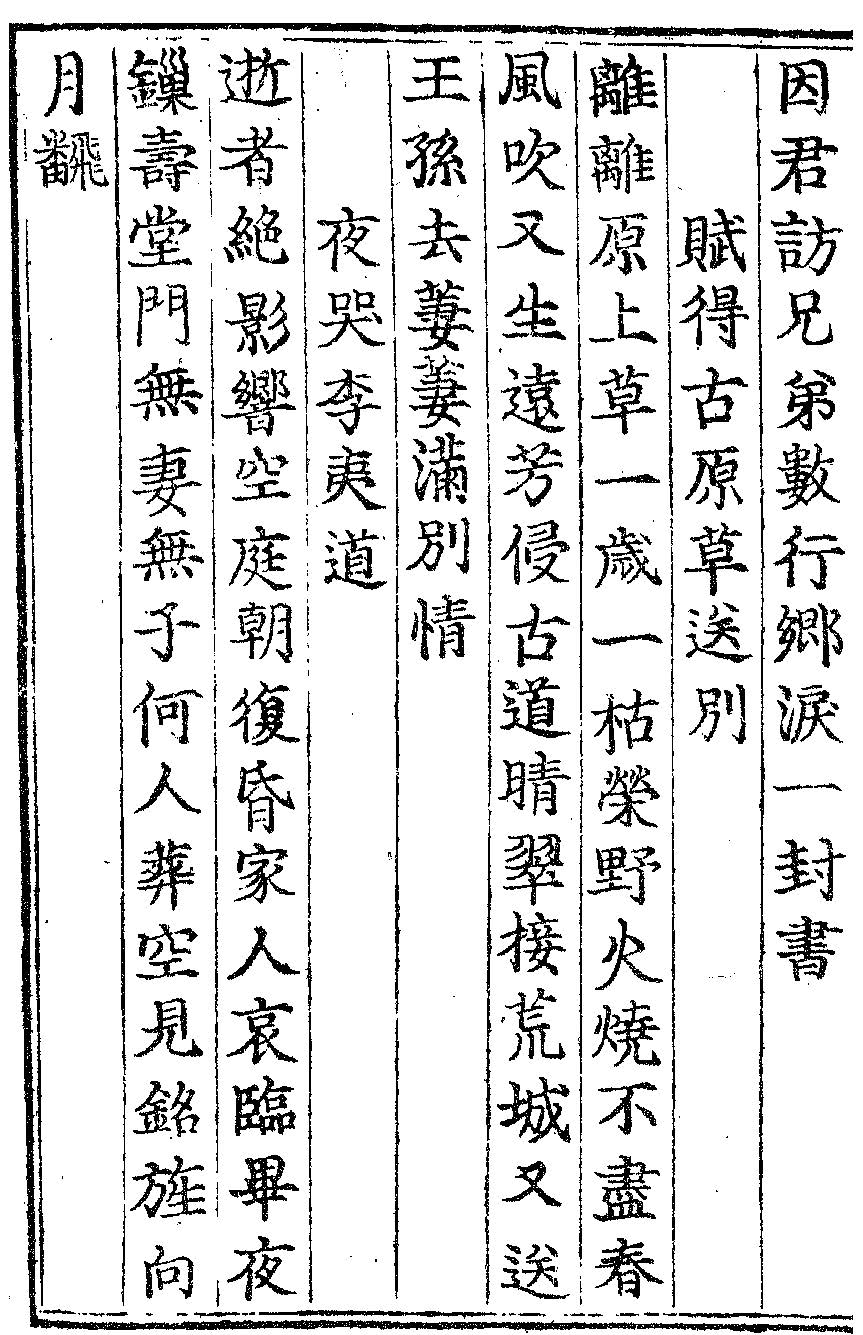 因君訪兄弟數行鄉淚一封書
賦得古原草送別
離離原上草一歲一枯榮野火燒不盡春
風吹又生遠芳侵古道晴翠接荒城又送
王孫去萋萋滿別情
夜哭李夷道
逝者絕影響空庭朝復昏家人哀臨畢夜
鏁壽堂門無妻無子何人葬空見銘旌向
月飜